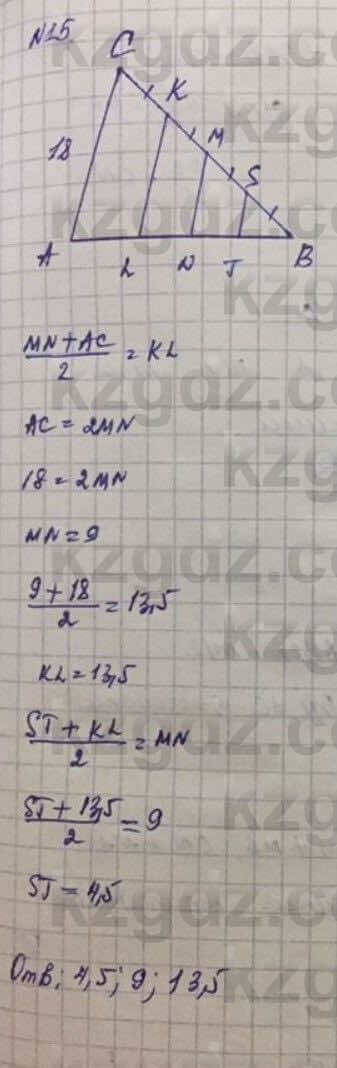 N25
C
K
18
M
S
A
L
N
T
B
MN+AC/2 = KL
AC = 2MN
18 = 2MN
MN = 9
9+18/2 = 13,5
KL = 13,5
ST + KL/2 = MN
ST + 13,5/2 = 9
ST = 4,5
Отв: 4,5; 9; 13,5
kzgdz.com